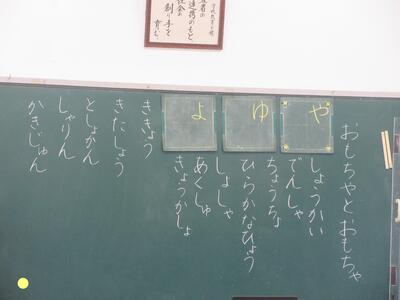 連携のもと、
社会の
創り手を
おもちやとおもちゃ
や
しょうかい
でんしゃ
ちょうちょ
ゆ
ひらがなひょう
しょしゃ
よ
あくしゅ
きょうかしょ
ききょう
きたしょう
としょかん
しゃりん
かきじゅん